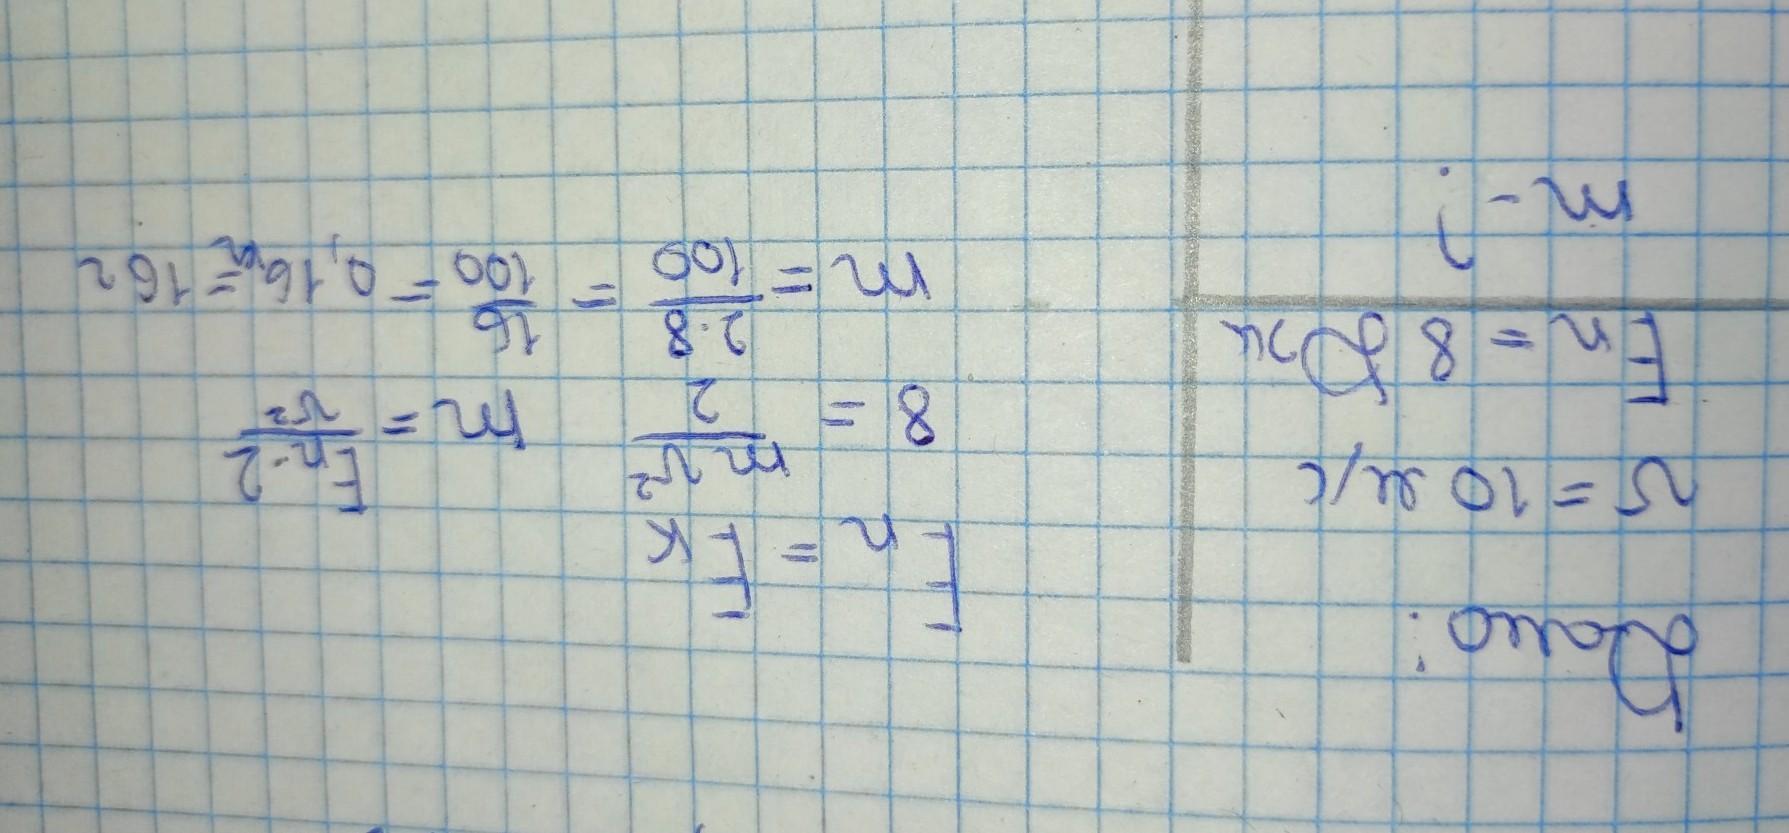 Дано:
v = 10 м/с
Eп = 8 Дж
m - ?
Eп = Eк
8 = mv²/2 m = Eп·2/v²
m = 2·8/100 = 16/100 = 0,16кг = 16г